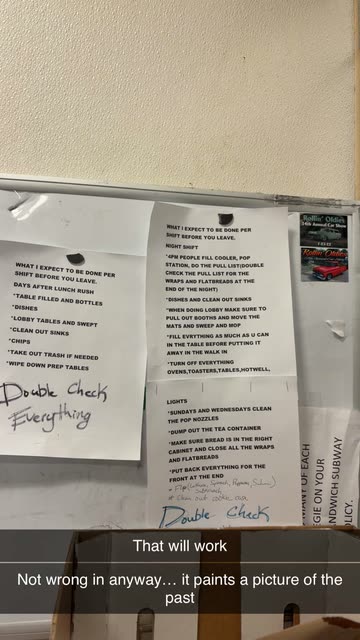 WHAT I EXPECT TO BE DONE PER
SHIFT BEFORE YOU LEAVE.
DAYS AFTER LUNCH RUSH
*TABLE FILLED AND BOTTLES
*DISHES
*LOBBY TABLES AND SWEPT
*CLEAN OUT SINKS
*CHIPS
*TAKE OUT TRASH IF NEEDED
*WIPE DOWN PREP TABLES
Double Check
Everything
WHAT I EXPECT TO BE DONE PER
SHIFT BEFORE YOU LEAVE.
NIGHT SHIFT
*4PM PEOPLE FILL COOLER, POP
STATION, DO THE PULL LIST(DOUBLE
CHECK THE PULL LIST FOR THE
WRAPS AND FLATBREADS AT THE
END OF THE NIGHT)
*DISHES AND CLEAN OUT SINKS
*WHEN DOING LOBBY MAKE SURE TO
PULL OUT BOOTHS AND MOVE THE
MATS AND SWEEP AND MOP
*FILL EVRYTHING AS MUCH AS U CAN
IN THE TABLE BEFORE PUTTING IT
AWAY IN THE WALK IN
*TURN OFF EVERYTHING
OVENS,TOASTERS,TABLES,HOTWELL,
LIGHTS
*SUNDAYS AND WEDNESDAYS CLEAN
THE POP NOZZLES
*DUMP OUT THE TEA CONTAINER
*MAKE SURE BREAD IS IN THE RIGHT
CABINET AND CLOSE ALL THE WRAPS
AND FLATBREADS
*PUT BACK EVERYTHING FOR THE
FRONT AT THE END
Double Check
Rollin' Oldies
34th Annual Car Show
Rollin' Oldies
MANY OF EACH
GIE ON YOUR
NDWICH SUBWAY
LICY.
That will work
Not wrong in anyway… it paints a picture of the
past